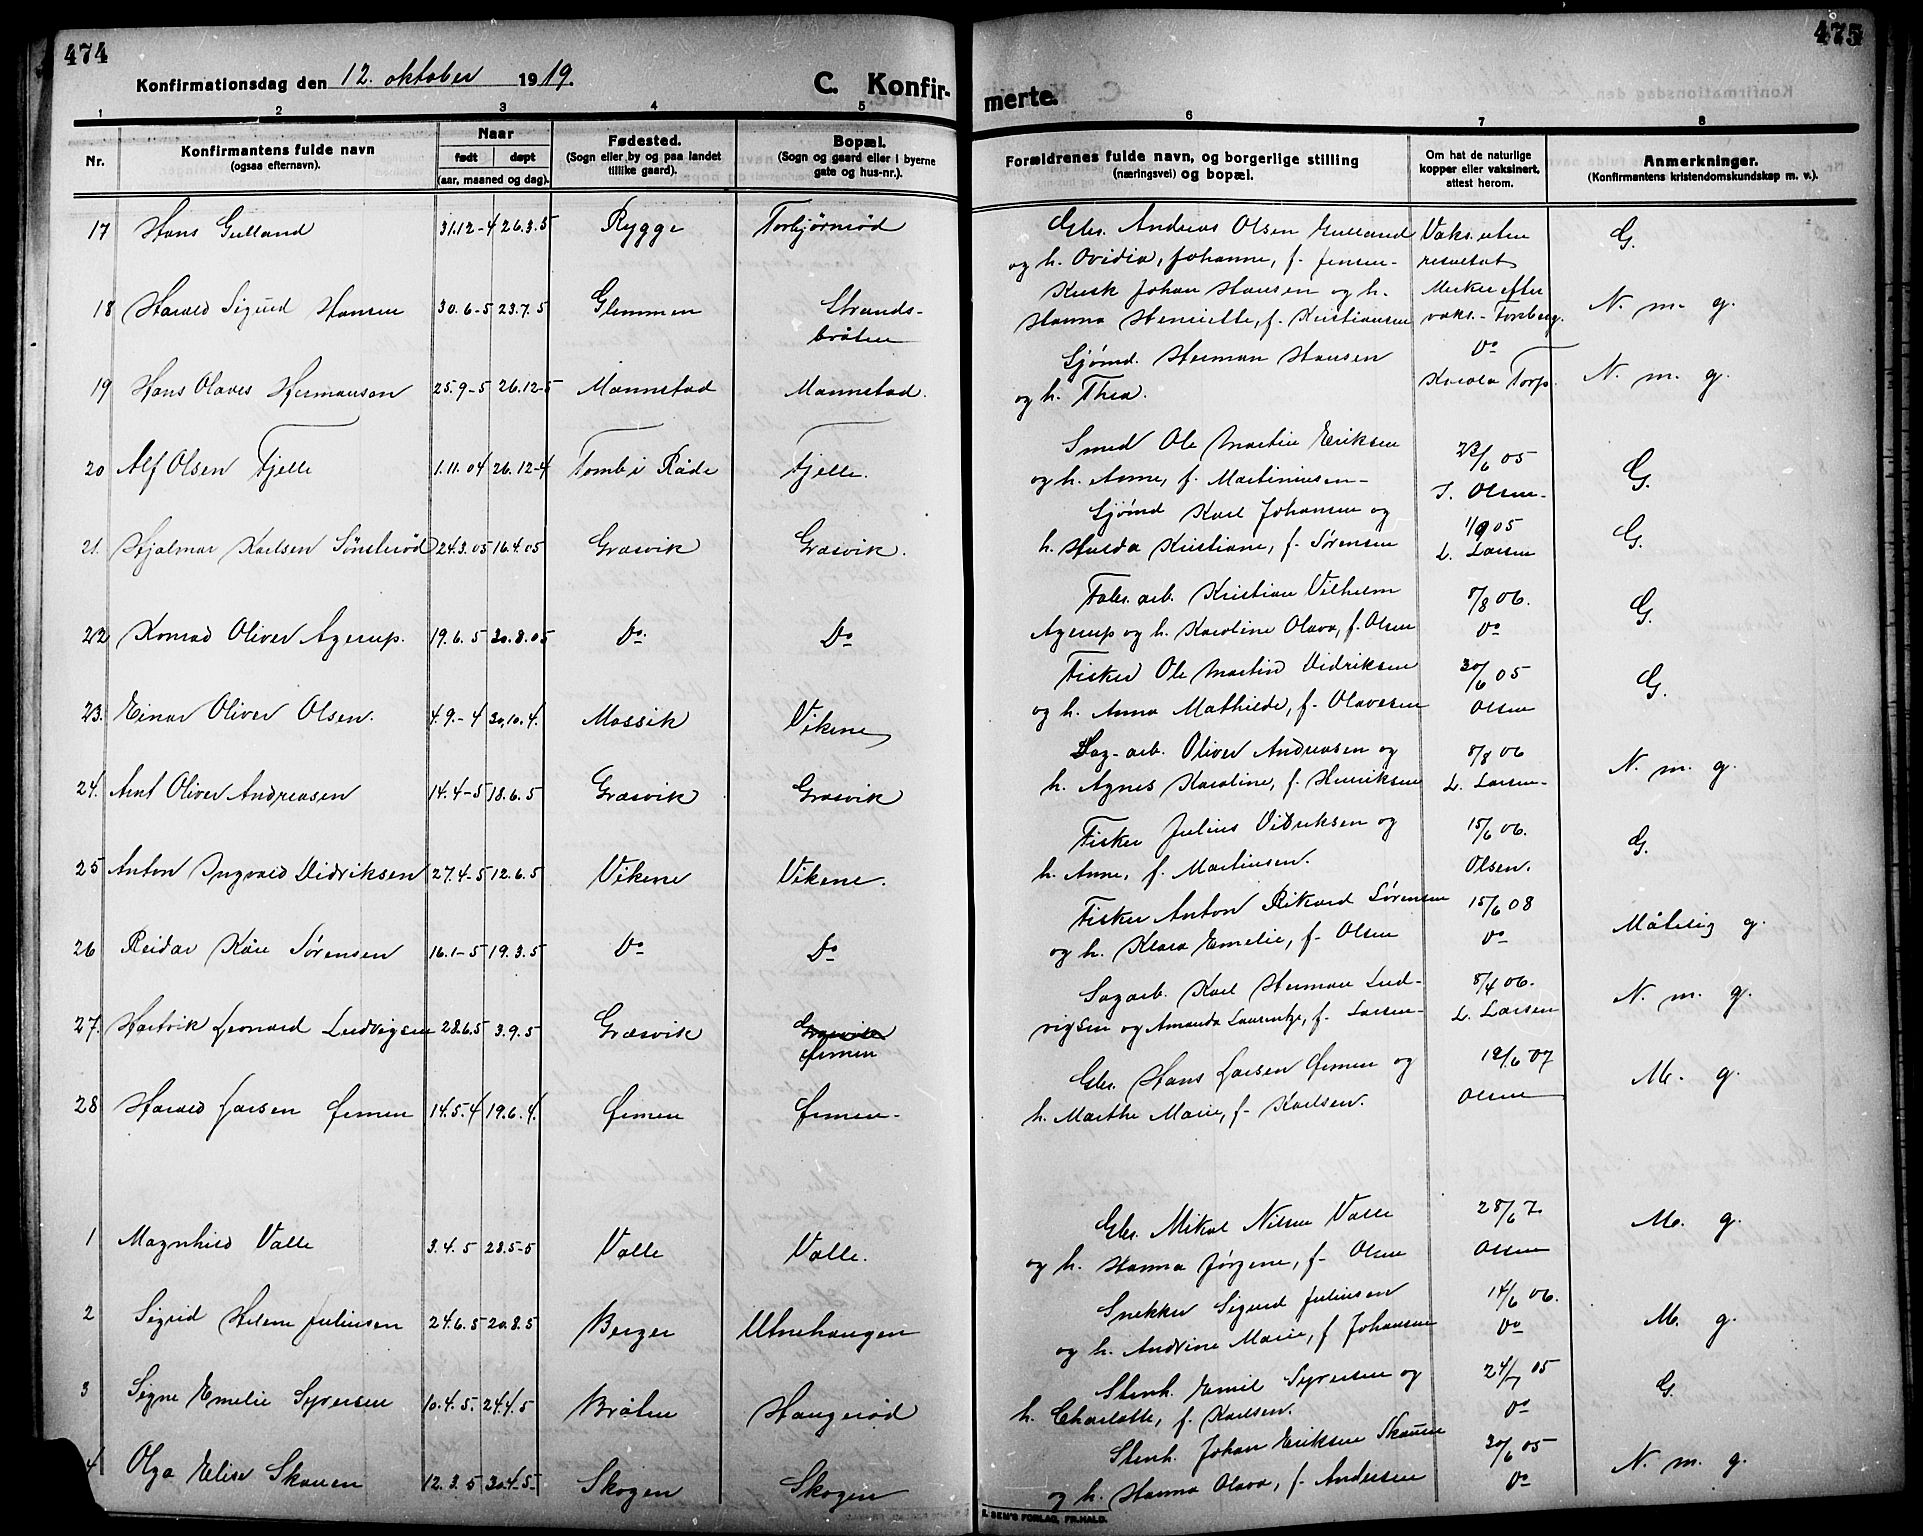 474
475
Konfirmationsdag den 12. oktober 1919.
C. Konfir-
merte.
1 2 3 4 5 6 7 8
Nr.
Konfirmantens fulde navn
(ogsaa efternavn).
Naar
født døpt
(aar, maaned og dag).
Fødested.
(Sogn eller by og paa landet
tillike gaard).
Bopæl.
(Sogn og gaard eller i byerne
gate og hus-nr.).
Forældrenes fulde navn, og borgerlige stilling
(næringsvei) og bopæl.
Om hat de naturlige
kopper eller vaksinert,
attest herom.
Anmerkninger.
(Konfirmantens kristendomskundskap m. v.).
17 Hans Gulland 31.12-4 26.3.5 Rygge Torbjørnrød
Gbr. Andreas Olsen Gulland Vaks. uten
og h. Ovidia, Johanne, f. Jensen- resultat G.
18 Harald Sigurd Hansen 30.6-5 23.7.5 Glemmen Strands-
bråten
Kusk Johan Hansen og h. Merker efter
Hanna Henriette, f. Kristiansen vaks.- Tonberg. N. m. g.
19 Hans Olaves Hermansen 25.9-5 26.12-5 Mannstad Mannstad.
Sjømd. Herman Hansen Do
og h. Thea. Karola Torp. N. m. g.
20 Alf Olsen Fjelle 1.11.04 26.12-4 Tomb i Råde Fjelle.
Smed Ole Martin Eriksen 23/6 05
og h. Anne, f. Martinsen- S. Olsen- G.
21. Hjalmar Karlsen Sønsterød 24.3.05 16.4.05 Græsvik Græsvik.
Sjømd Karl Johansen og 1/9 05
h. Hulda Kristiane, f. Sørensen L. Larsen G.
22 Konrad Oliver Agerup. 19.6.5 20.8.05 Do. Do
Fabr. arb. Kristian Vilhelm 8/8 06.
Agerup og h. Karoline Olava, f. Olsen Do G.
23. Einar Oliver Olsen. 4.9.-4 30.10.4. Mossik Vikene
Fisker Ole Martin Vidriksen 30/6 05
og h. Anna Mathilde, f. Olavesen Olsen G.
24. Arnt Oliver Andreasen 14.4-5 18.6.5 Græsvik Græsvik
Sag-arb. Oliver Andreasen og 8/8 06
h. Agnes Karoline, f. Henriksen L. Larsen- N. m. g.
25 Anton Ingvald Vidriksen 27.4-5 12.6.5 Vikene Vikene.
Fisker Julius Vidriksen og 15/6 06.
h. Anne, f. Martinsen. Olsen. G.
26 Reidar Kåre Sørensen 16.1-5 19.3.5 Do Do
Fisker Anton Rikard Sørensen 15/6 08
og h. Klara Emelie, f. Olsen Do Måtelig g.
27. Hartvik Leonard Ludvigsen 28.6.5 3.9.5 Græsvik Græsvik
Ørmen
Sagarb. Karl Herman Lud- 8/4 06.
vigsen og Amanda Laurentze, f. Larsen- L. Larsen N. m. g.
28 Harald Larsen Ørmen 14.5.4 19.6.4. Ørmen Ørmen-
Gbr. Hans Larsen Ørmen og 19/6 07
h. Marthe Marie, f. Karlsen. Olsen M. g.
1 Magnhild Valle 3.4.5 28.5-5 Valle Valle.
Gbr. Mikal Nilsen Valle 28/6 7.
og h. Hanna Jørgene, f. Olsen Olsen M. g.
2 Sigrid Helene Juliusen 24.6.5 20.8.5 Berger Utnehaugen
Snekker Sigurd Juliusen 14/6 06.
og h. Andrine Marie, f Johansen Do M. g.
3 Signe Emelie Syversen 10.4.5. 24.4.5 Bråten Haugerød
Stenh. Emil Syversen og 24/7 05
h. Charlotte, f. Karlsen. Do G.
4 Olga Elise Skauen 12.3.5 30.4-5- Skogen Skogen
Stenh. Johan Eriksen Skauen 30/6 05
og h. Hanna Olava, f. Andersen Do N. m. g.
SEM'S FORLAG, FR.HALD.